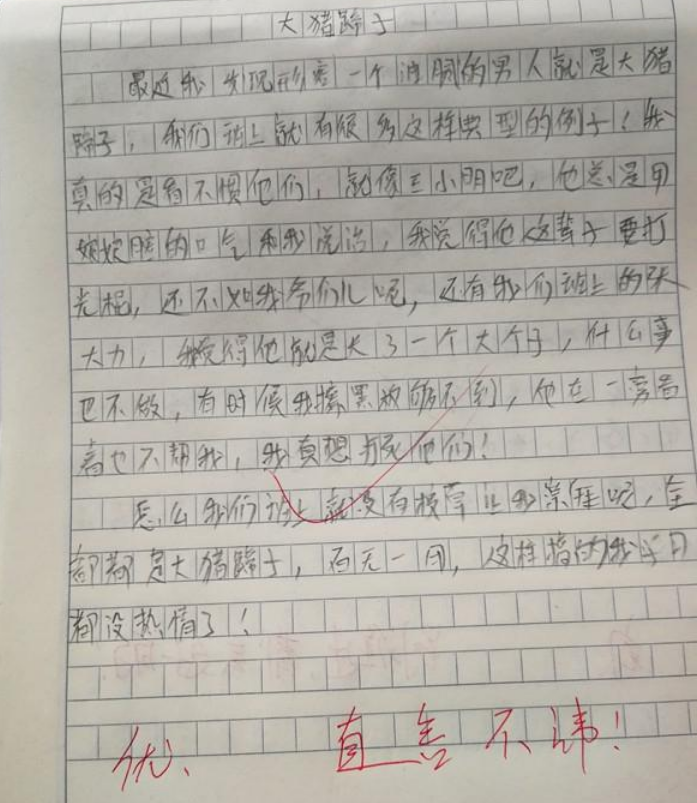 大猪蹄子
最近我发现形容一个油腻的男人就是大猪
蹄子，我们班上就有很多这样典型的例子！我
真的是看不惯他们，就像王小明吧，他总是用
娘娘腔的口气和我说话，我觉得他这辈子要打
光棍，还不如我爷们儿呢，还有我们班上的张
大力，我觉得他就是长了一个大个子，什么事
也不做，有时候我擦黑板够不到，他在一旁看
着也不帮我，我真想打死他们！
怎么我们班上就没有校草让我崇拜呢，全
都都是大猪蹄子，百无一用，这样搞的我学习
都没热情了！
优、 直言不讳！